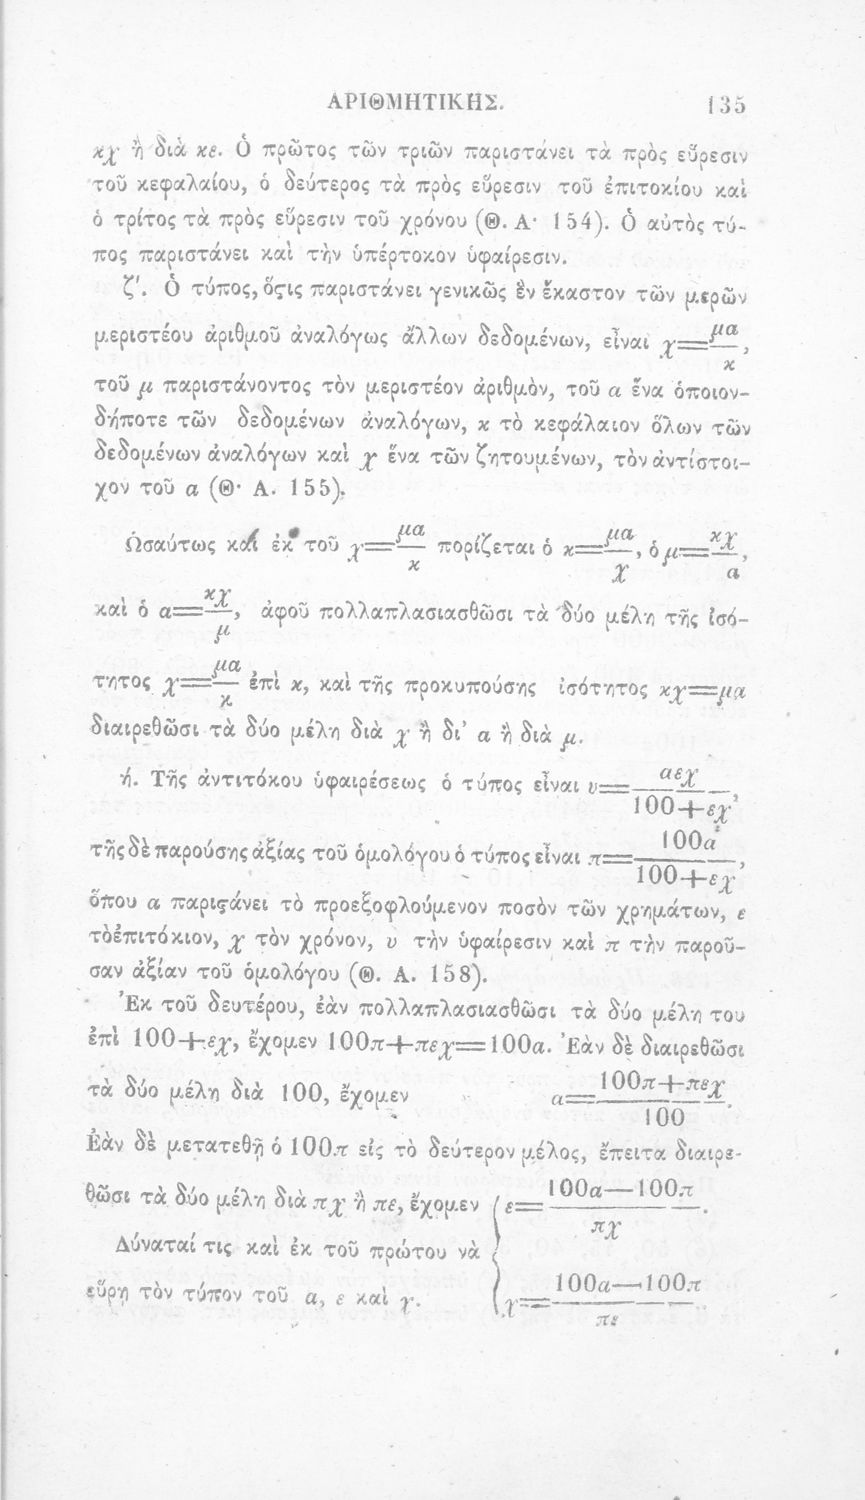 ΑΡΙΘΜΗΤΙΚΗΣ. 135
κχ ἢ διὰ κε. Ὁ πρῶτος τῶν τριῶν παριστάνει τὰ πρὸς εὕρεσιν
τοῦ κεφαλαίου, ὁ δεύτερος τὰ πρὸς εὕρεσιν τοῦ ἐπιτοκίου καὶ
ὁ τρίτος τὰ πρὸς εὕρεσιν τοῦ χρόνου (Θ. Α· 154). Ὁ αὐτὸς τύ-
πος παριστάνει καὶ τὴν ὑπέρτοκον ὑφαίρεσιν.
ζ'. Ὁ τύπος, ὅςις παριστάνει γενικῶς ἓν ἕκαστον τῶν μερῶν
μεριστέου ἀριθμοῦ ἀναλόγως ἄλλων δεδομένων, εἶναι χ=μα/κ,
τοῦ μ παριστάνοντος τὸν μεριστέον ἀριθμὸν, τοῦ α ἕνα ὁποιον-
δήποτε τῶν δεδομένων ἀναλόγων, κ τὸ κεφάλαιον ὅλων τῶν
δεδομένων ἀναλόγων καὶ χ ἕνα τῶν ζητουμένων, τὸν ἀντίστοι-
χον τοῦ α (Θ· Α. 155).
Ὡσαύτως καὶ ἐκ τοῦ χ=μα/κ πορίζεται ὁ κ=μα/χ, ὁ μ=κχ/α,
καὶ ὁ α=κχ/μ, ἀφοῦ πολλαπλασιασθῶσι τὰ δύο μέλη τῆς ἰσό-
τητος χ=μα/κ ἐπὶ κ, καὶ τῆς προκυπούσης ἰσότητος κχ=μα
διαιρεθῶσι τὰ δύο μέλη διὰ χ ἢ δι' α ἢ διὰ μ.
ή. Τῆς ἀντιτόκου ὑφαιρέσεως ὁ τύπος εἶναι υ=αεχ/100+εχ,
τῆς δὲ παρούσης ἀξίας τοῦ ὁμολόγου ὁ τύπος εἶναι π=100α/100+εχ,
ὅπου α παριςάνει τὸ προεξοφλούμενον ποσὸν τῶν χρημάτων, ε
τὸ ἐπιτόκιον, χ τὸν χρόνον, υ τὴν ὑφαίρεσιν καὶ π τὴν παροῦ-
σαν ἀξίαν τοῦ ὁμολόγου (Θ. Α. 158).
Ἐκ τοῦ δευτέρου, ἐὰν πολλαπλασιασθῶσι τὰ δύο μέλη του
ἐπὶ 100+εχ, ἔχομεν 100π+πεχ=100α. Ἐὰν δὲ διαιρεθῶσι
τὰ δύο μέλη διὰ 100, ἔχομεν α=100π+πεχ/100.
Ἐὰν δὲ μετατεθῇ ὁ 100π εἰς τὸ δεύτερον μέλος, ἔπειτα διαιρε-
θῶσι τὰ δύο μέλη διὰ πχ ἢ πε, ἔχομεν ε=100α—100π/πχ.
Δύναταί τις καὶ ἐκ τοῦ πρώτου νὰ
εὕρῃ τὸν τύπον τοῦ α, ε καὶ χ. χ=100α—100π/πε